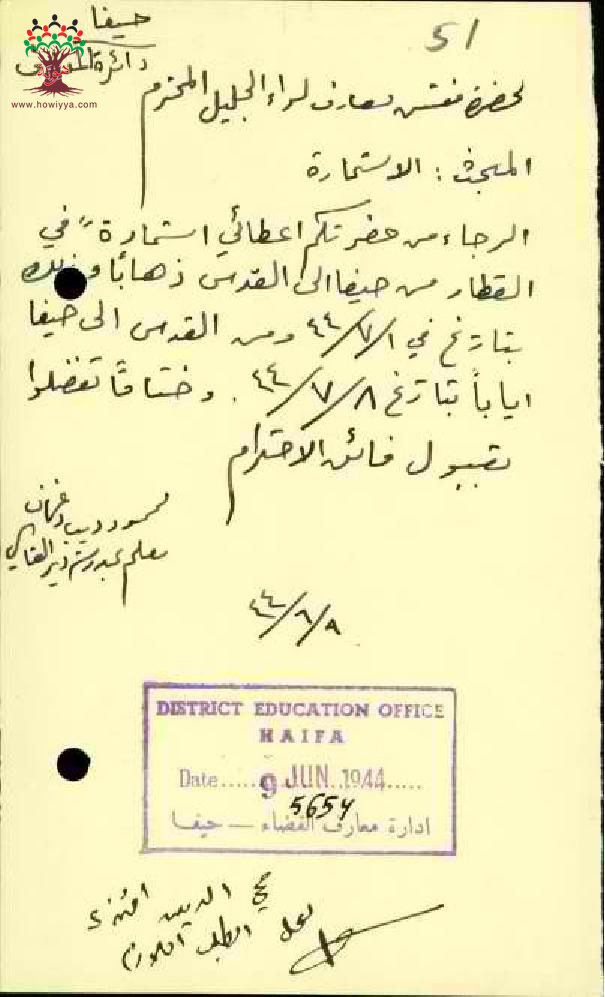 51
حيفا
دائرة المعارف
www.howiyya.com
لحضرة مفتش معارف لواء الجليل المحترم
المبحث : الاستمارة
الرجاء من حضرتكم اعطائي استمارة في
القطار من حيفا الى القدس ذهاباً وذلك
بتاريخ في ٤٤/٧/١ ومن القدس الى حيفا
اياباً بتاريخ ٤٤/٧/٨ . وختاماً تفضلوا
بقبول فائق الاحترام
محمود ديب
معلم بمدرسة دير
٤٤/٦/٩
DISTRICT EDUCATION OFFICE
HAIFA
Date..... 9 JUN 1944.....
5654
ادارة معارف القضاء — حيفا
الدين افندي
الطلب